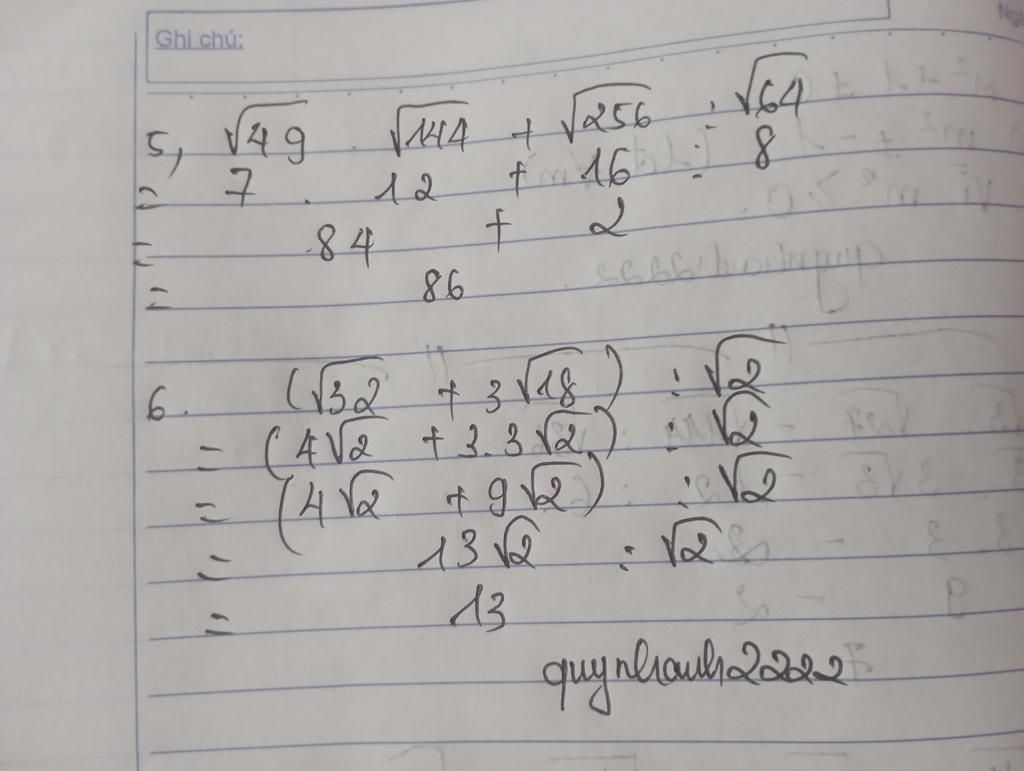 Ghi chú:
5, √49 . √144 + √256 : √64
= 7 . 12 + 16 : 8
= 84 + 2
= 86
6. (√32 + 3√18) : √2
= (4√2 + 3.3√2) : √2
= (4√2 + 9√2) : √2
= 13√2 : √2
= 13
quynhanh2222